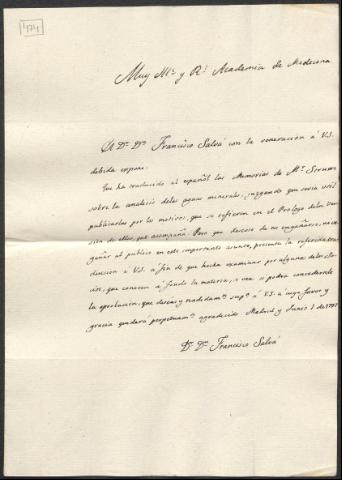 474
Muy Ille. y Rl. Academia de Medicina
El Dr. Dn. Francisco Salvá con la veneracion á V.S.
debida expone:
Que ha traducido al español las Memorias de Mr.
sobre la analisis delas aguas minerales, juzgando que seria util
publicarlas por los motivos, que se refieren en el Prologo dela
de ellas, que acompaña. Pero que deseoso de no engañarse, ni en-
gañar al publico en este importante asunto, presenta la referida tra-
duccion á V.S. á fin de que hecha examinar por algunos delos So-
cios, que conocen á fondo la materia, se vea si podra concedersele
la aprobacion, que desea y rendidamte. supca. á V.S. á cuyo favor y
gracia quedará perpetuamte. agradecido Madrid y Junio 1 de
Dr. Dn. Francisco Salvá